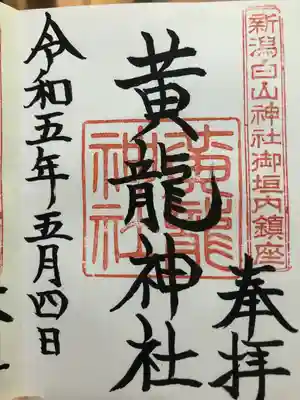 新潟白山神社御垣内鎮座
奉拝
黄龍神社
黄龍
神社
令和五年五月四日